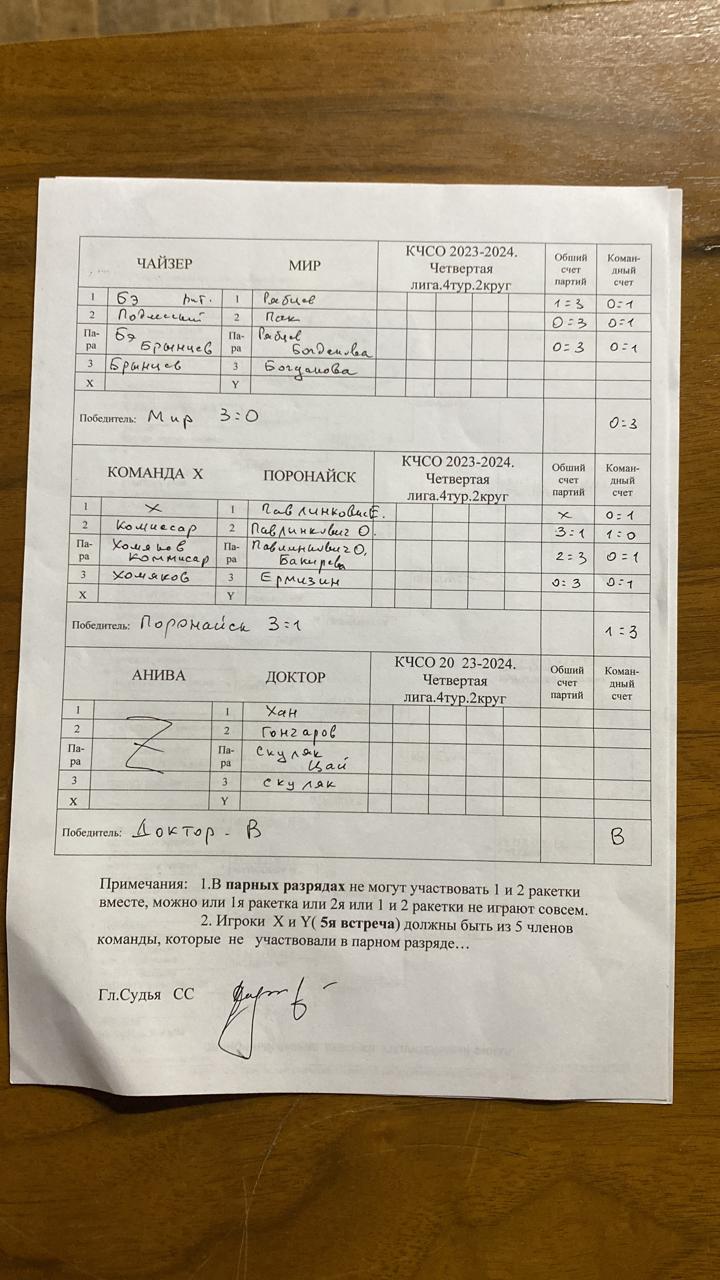 ЧАЙЗЕР МИР КЧСО 2023-2024. Четвертая лига.4тур.2круг Общий счет партий Коман-дный счет
1 Бэ 1 Рябцев 1=3 0=1
2 2 Пак 0=3 0=1
Па-ра Бэ Брынцев Па-ра Рябцев Богданова 0=3 0=1
3 Брынцев 3 Богданова
X Y
Победитель: Мир 3:0 0=3
КОМАНДА X ПОРОНАЙСК КЧСО 2023-2024. Четвертая лига.4тур.2круг Обший счет партий Коман-дный счет
1 X 1 Павлинкович Е. X 0=1
2 Комиссар 2 Павлинкович О. 3=1 1=0
Па-ра Хомяков Коммисар Па-ра Павлинкович О, Бакирева 2=3 0=1
3 Хомяков 3 Ермизин 0=3 0=1
X Y
Победитель: Поронайск 3=1 1=3
АНИВА ДОКТОР КЧСО 20 23-2024. Четвертая лига.4тур.2круг Обший счет партий Коман-дный счет
1 Z 1 Хан
2 2 Гончаров
Па-ра Па-ра Скуляк Цай
3 3 Скуляк
X Y
Победитель: Доктор - В В
Примечания: 1.В парных разрядах не могут участвовать 1 и 2 ракетки
вместе, можно или 1я ракетка или 2я или 1 и 2 ракетки не играют совсем.
2. Игроки X и Y( 5я встреча) должны быть из 5 членов
команды, которые не участвовали в парном разряде…
Гл.Судья СС